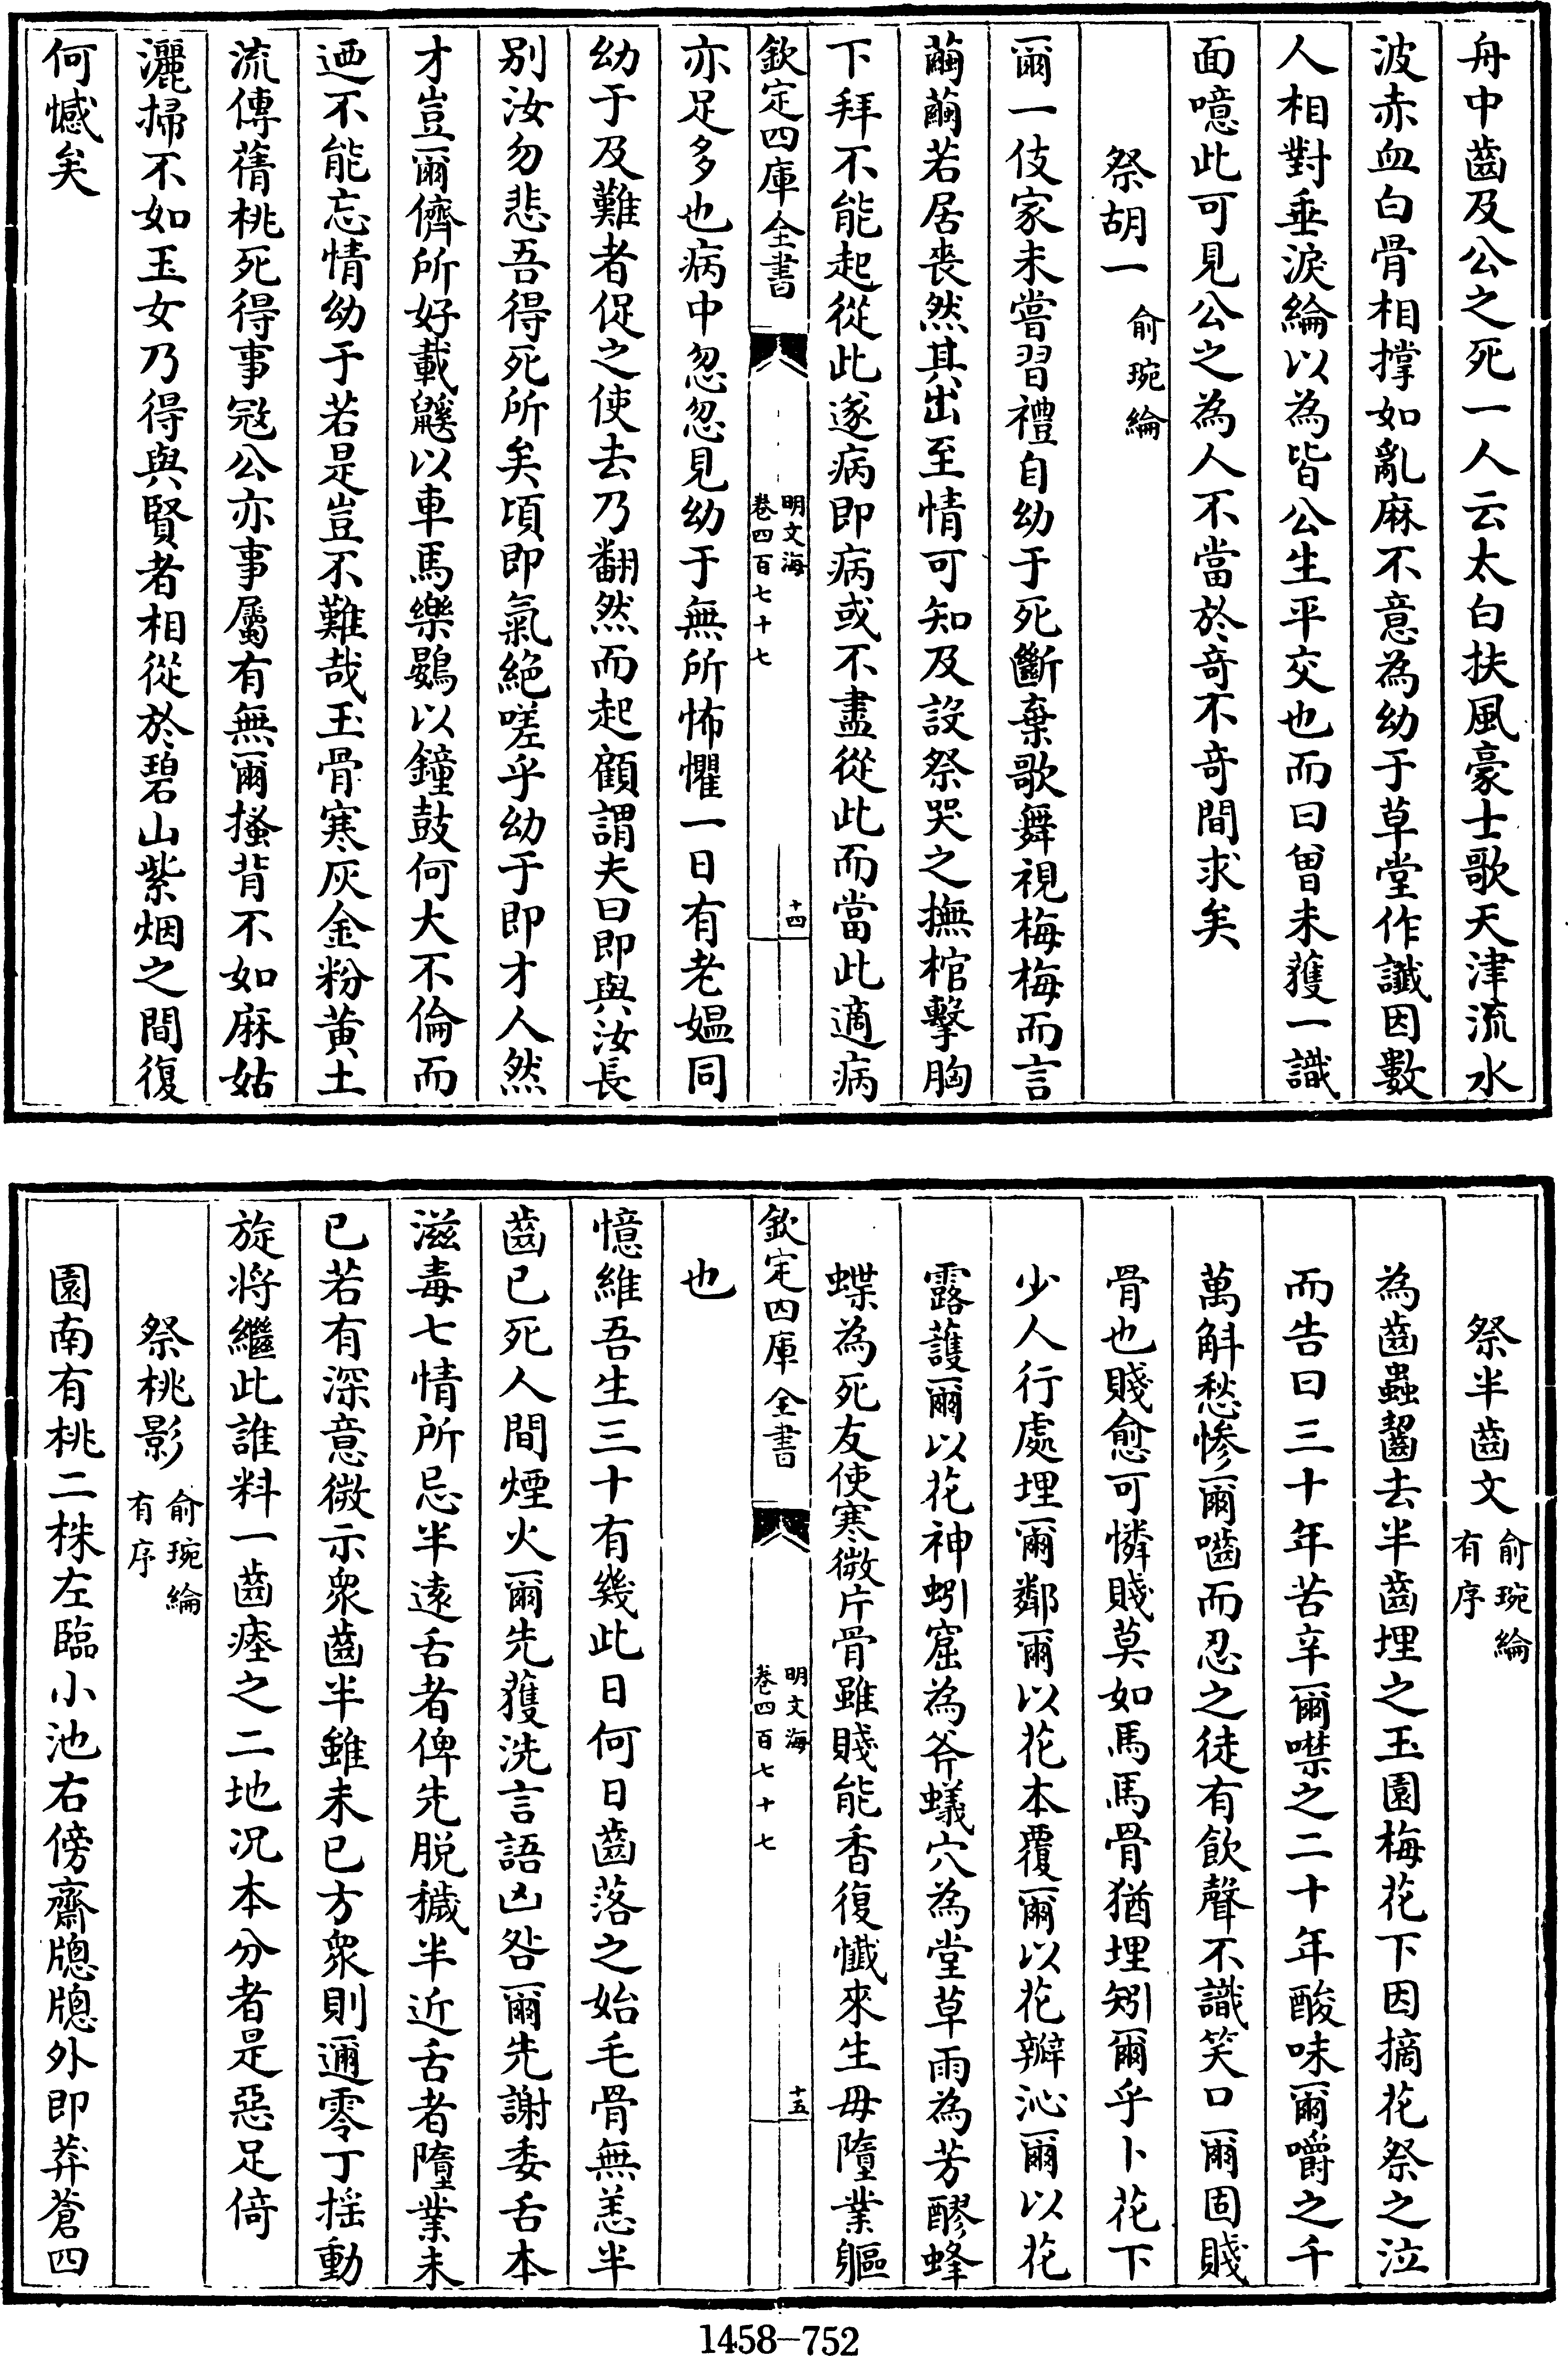 舟中齒及公之死一人云太白扶風豪士歌天津流水
波赤血白骨相撑如亂麻不意為幼于草堂作讖因數
人相對垂淚綸以為皆公生平交也而曰曾未獲一識
面噫此可見公之為人不當於竒不竒間求矣
祭胡一 俞琬綸
爾一伎家未嘗習禮自幼于死斷棄歌舞視梅梅而言
繭繭若居喪然其出至情可知及設祭哭之撫棺擊胸
下拜不能起從此遂病即病或不盡從此而當此適病
欽定四庫全書
明文海
卷四百七十七
十四
亦足多也病中忽忽見幼于無所怖懼一日有老媼同
幼于及難者促之使去乃翻然而起顧謂夫曰即與汝長
别汝勿悲吾得死所矣頃即氣絶嗟乎幼于即才人然
才豈爾儕所好載鼷以車馬樂鷃以鐘鼓何大不倫而
迺不能忘情幼于若是豈不難哉玉骨寒灰金粉黄土
流傳蒨桃死得事冦公亦事屬有無爾搔背不如麻姑
灑掃不如玉女乃得與賢者相從於碧山紫烟之間復
何憾矣
祭半齒文 俞琬綸
有序
為齒蟲齧去半齒埋之玉園梅花下因摘花祭之泣
而告曰三十年苦辛爾噤之二十年酸味爾嚼之千
萬斛愁慘爾嚙而忍之徒有飲聲不識笑口爾固賤
骨也賤愈可憐賤莫如馬馬骨猶埋矧爾乎卜花下
少人行處埋爾鄰爾以花本覆爾以花瓣沁爾以花
露護爾以花神蚓窟為斧蟻穴為堂草雨為芳醪蜂
蝶為死友使寒微片骨雖賤能香復懺來生毋墮業軀
欽定四庫全書
明文海
卷四百七十七
十五
也
憶維吾生三十有幾此日何日齒落之始毛骨無恙半
齒已死人間煙火爾先獲洗言語凶咎爾先謝委舌本
滋毒七情所忌半遠舌者俾先脱穢半近舌者墮業未
已若有深意微示衆齒半雖未已方衆則邇零丁摇動
旋將繼此誰料一齒瘞之二地况本分者是惡足倚
祭桃影 俞琬綸
有序
園南有桃二株左臨小池右傍齋牕牕外即莽蒼四
1458-752